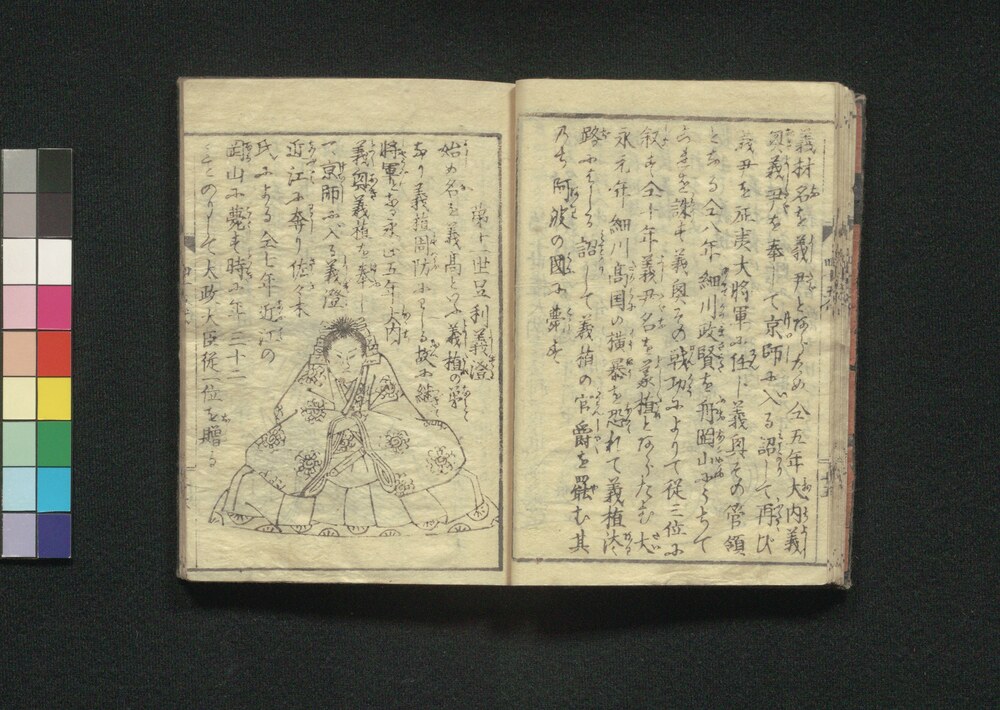 義材名を義尹とあらため仝五年大内義
興義尹を奉して京師に入る詔して再び
義尹を征夷大将軍に任じ義興その管領
となる仝八年細川政賢を舟岡山にうちて
これを誅す義興その戦功によりて従三位に
叙す仝十年義尹名を義植とあらたむ大
永元年細川高国の横暴を恐れて義植淡
路にはしる詔して義植の官爵を罷む其
乃ち阿波の国に薨ず
第十一世足利義澄
始め名を義高と云ふ義植の弟
なり義植周防にはしる故に継
将軍となる永正五年大内
義興義植を奉し
て京師に入る義澄
近江に奔り佐々木
氏による仝七年近江の
岡山に薨す時に年三十二
にして大政大臣従一位を贈る